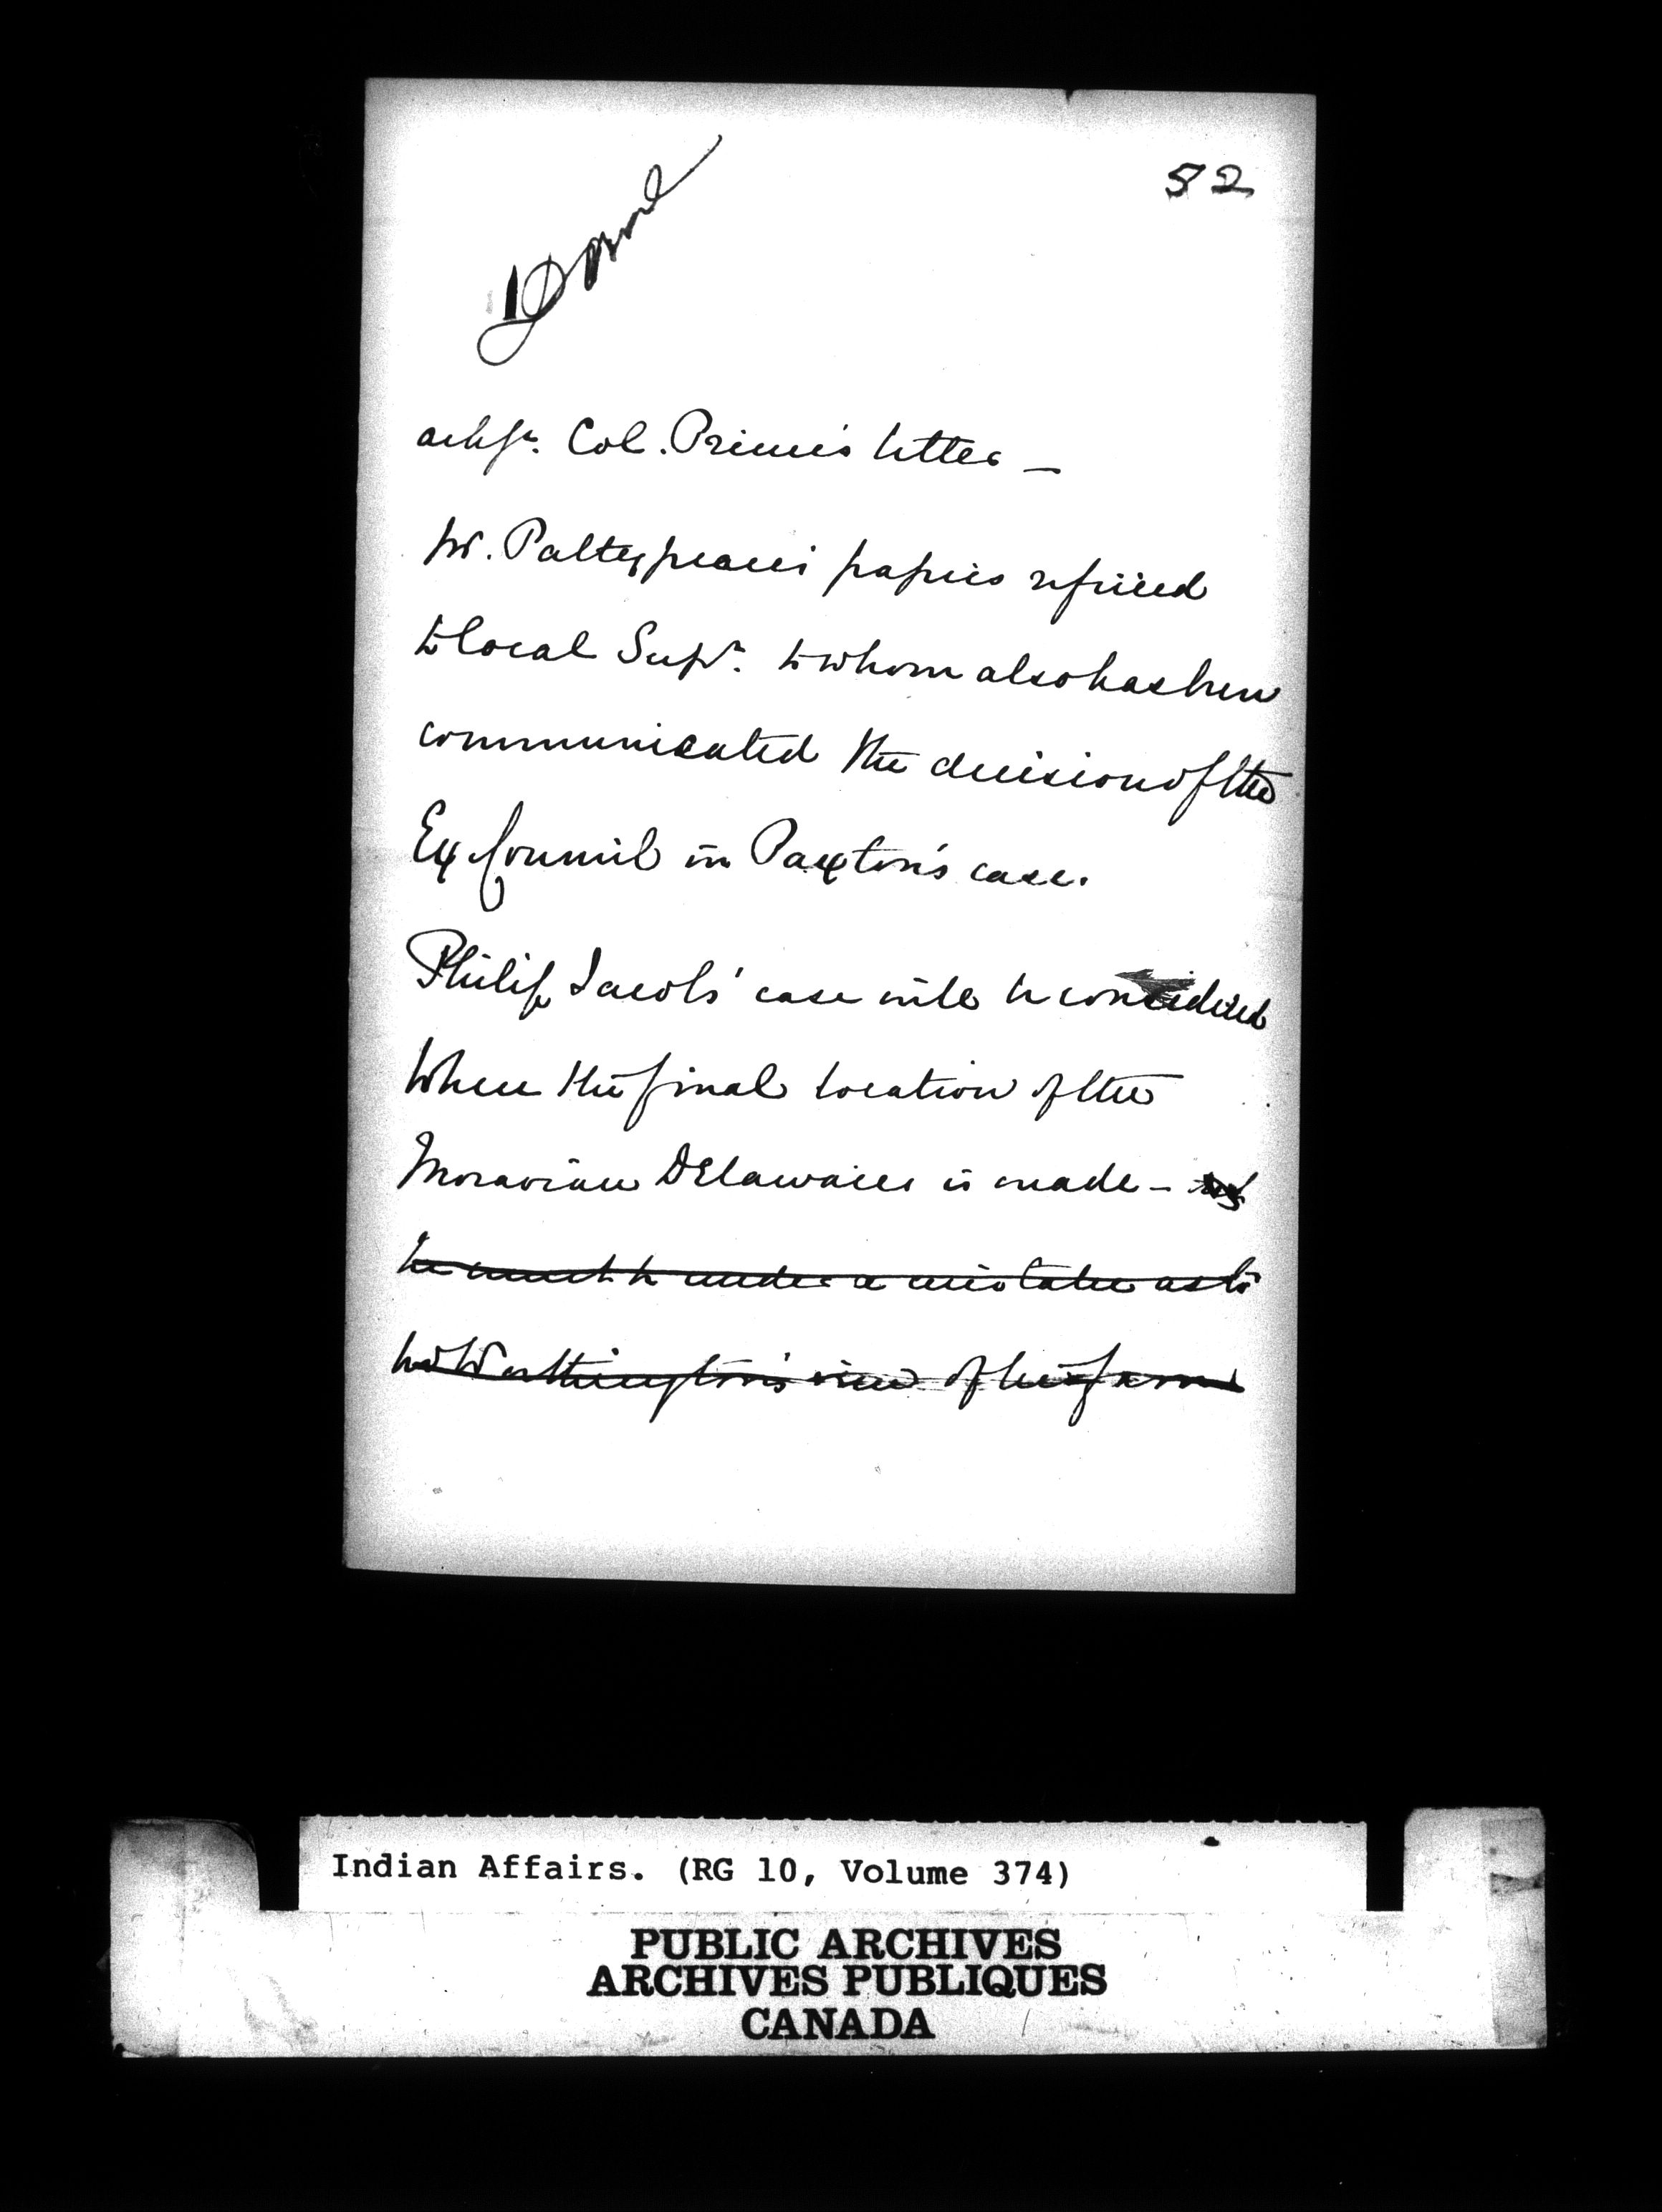 52
Done
Col. Prince's letter —
papers referred
to local Supt. to whom also has been
communicated the decision of the
Ex Council in Paxton's case.
Philip Jacobs' case will be considered
when the final location of the
Moravian Delawares is made —
he must be under a mistake as to
Mr Worthington's view of his farm
Indian Affairs. (RG 10, Volume 374)
PUBLIC ARCHIVES
ARCHIVES PUBLIQUES
CANADA